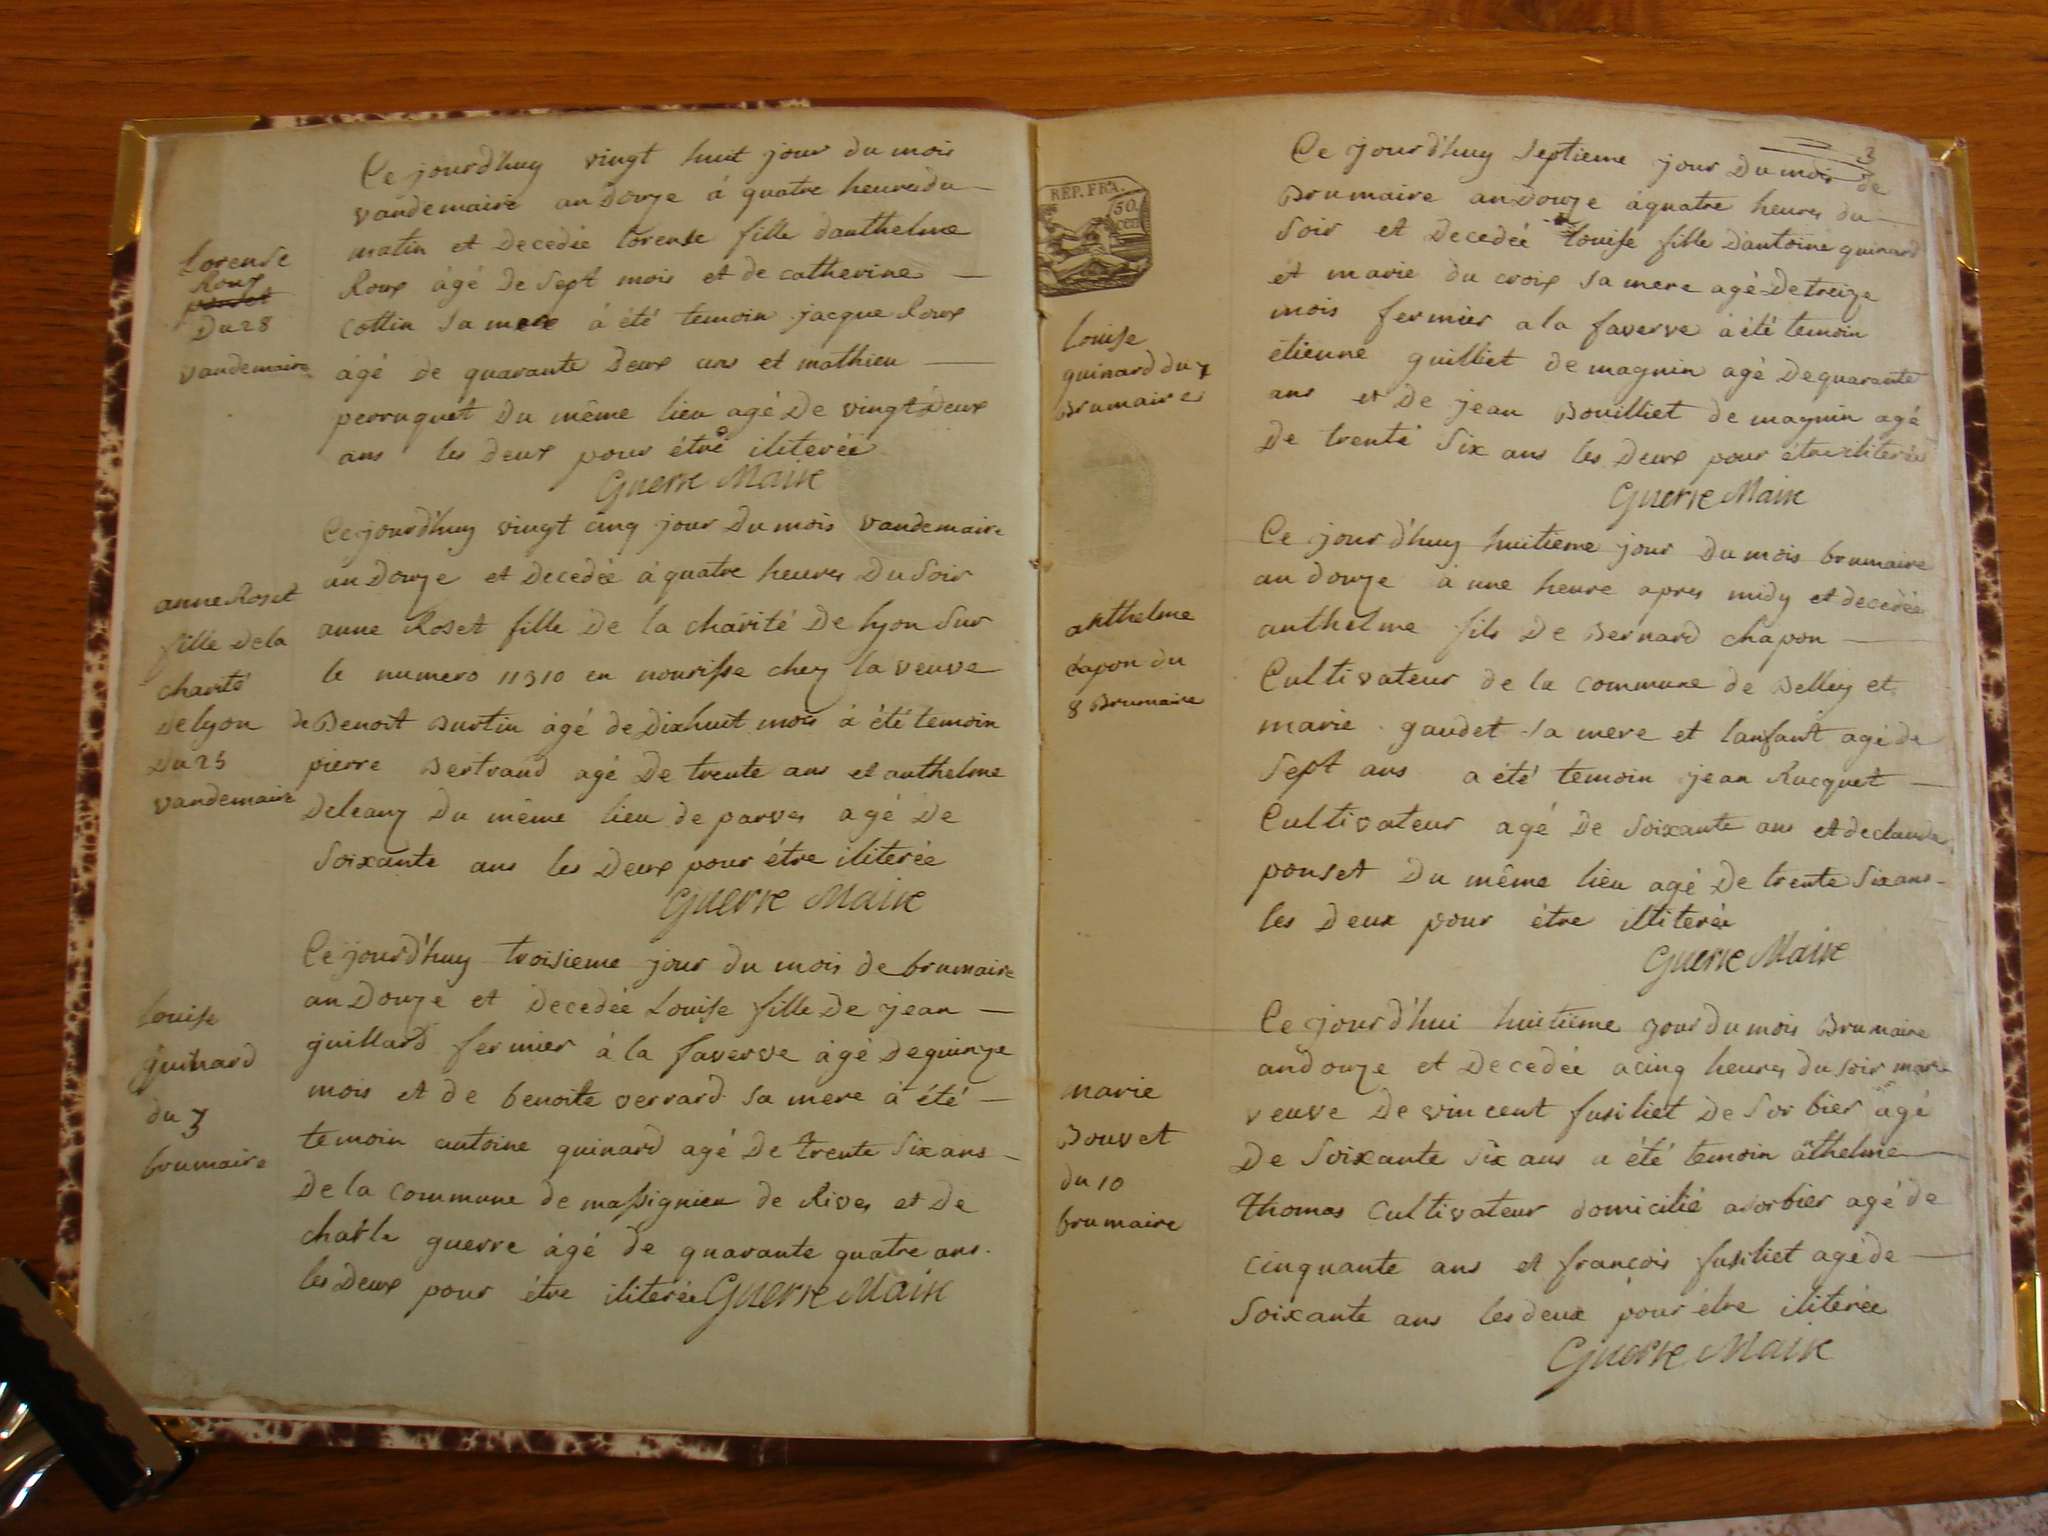 Lorense
Roux
Du 28
vandemaire
Ce jourd'huy vingt huit jour du mois
vandemaire an Douze á quatre heures du
matin et Decedée lorense fille d'anthelme
Roux ágé De Sept mois et de catherine
Cottin Sa mere á été temoin jacque Roux
ágé De quarante Deux ans et mathieu
perruquet Du même lieu agé De vingt Deux
ans les Deux pour étre iliterée
Guerre Maire
anne Roset
fille De la
charité
De lyon
Du 25
vandemaire
Ce jourd'huy vingt cinq jour Du mois vandemaire
an Douze et Decedée á quatre heures Du Soir
anne Roset fille De la charité De lyon Sur
le numero 11310 en nourisse chez la veuve
de Benoit Burtin ágé de Dixhuit mois á été temoin
pierre Bertrand agé De trente ans et anthelme
Deleany Du même lieu de parves agé De
Soixante ans les Deux pour étre iliterée
Guerre Maire
Louise
guinard
du 3
brumaire
Ce jourd'huy troisieme jour du mois de brumaire
an Douze et Decedée Louise fille De jean
guillard fermier á la faverve ágé De quinze
mois et de benoite verrard Sa mere á été
temoin antoine guinard agé De trente Six ans
De la commune de massignieu de Rives et De
charle guerre ágé de quarante quatre ans
les Deux pour étre iliterée Guerre Maire
REP. FRA.
50
3
Louise
guinard du 7
Brumaire
Ce jourd'huy Septieme jour Du mois de
Brumaire an Douze á quatre heures du
Soir et Decedée Louise fille D'antoine guinard
et marie du croix Sa mere agé De treize
mois fermier a la faverve á été temoin
étienne guilliet De magnin agé De quarante
ans et De jean Bouilliet de magnin agé
De trente Six ans les Deux pour étre iliterée
Guerre Maire
anthelme
chapon du
8 Brumaire
Ce jour d'huy huitieme jour Du mois brumaire
an douze á une heure apres midy et decedée
anthelme fils De Bernard chapon
Cultivateur de la commune de Belley et
marie gaudet Sa mere et l'anfant agé de
Sept ans a été temoin jean Rucquet
Cultivateur agé De Soixante ans et de claude
ponset Du même lieu agé De trente Six ans
les Deux pour étre illiterée
Guerre Maire
Marie
Bouvet
du 10
brumaire
Ce jourd'hui huitieme jour du mois Brumaire
an douze et Decedée a cinq heures du soir marie
veuve De vincent fusiliet De Sorbier agé
De Soixante Six ans a été temoin anthelme
thomas Cultivateur domicilié a sorbier agé de
cinquante ans et francois fusiliet agé de
Soixante ans les deux pour étre iliterée
Guerre Maire